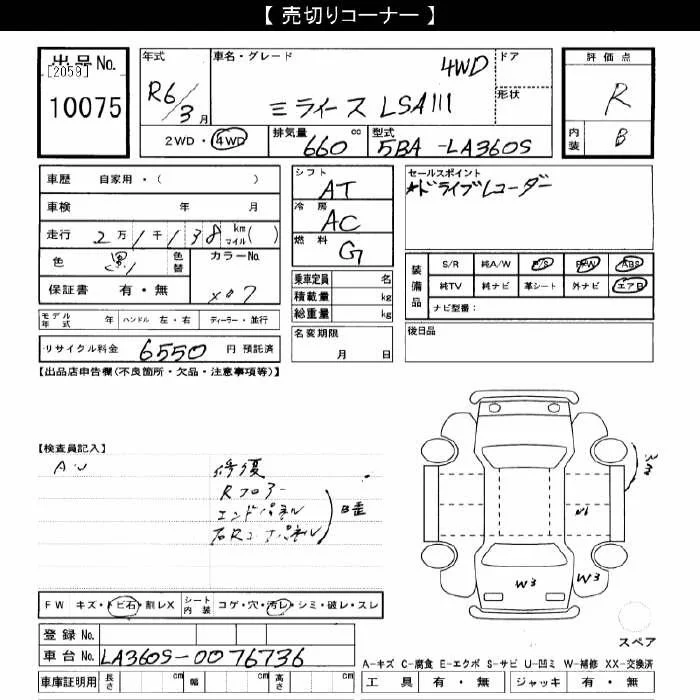 【 売切りコーナー 】
出品No.
[2059]
10075
年式
R6/3月
車名・グレード
4WD
ミライース LSAIII
ドア
形状
評価点
R
内装
B
2WD・4WD
排気量
660 cc
型式
5BA-LA360S
車歴 自家用・( )
車検 年 月
走行 2万1千138 km マイル( )
色 黒
色替
カラーNo.
X07
保証書 有・無
モデル年式 年 ハンドル 左・右 ディーラー・並行
リサイクル料金 6550 円 預託済
シフト
AT
冷房
AC
燃料
G
乗車定員 名
積載量 kg
総重量 kg
名変期限
月 日
セールスポイント
*ドライブレコーダー
装備品
S/R 純A/W P/S P/W ABS
純TV 純ナビ 革シート 外ナビ エアB
ナビ型番:
後日品
【出品店申告欄(不良箇所・欠品・注意事項等)】
【検査員記入】
修復
Rフロアー
エンドパネル
右Rコーナーパネル
B歪
W3
W3
FW キズ・トビ石・割レX シート内装 コゲ・穴・汚レ・シミ・破レ・スレ
登録No.
車台No. LA360S-0076736
車庫証明用 長さ cm 幅 cm 高さ cm
スペア
A-キズ C-腐食 E-エクボ S-サビ U-凹ミ W-補修 XX-交換済
工具 有・無 ジャッキ 有・無